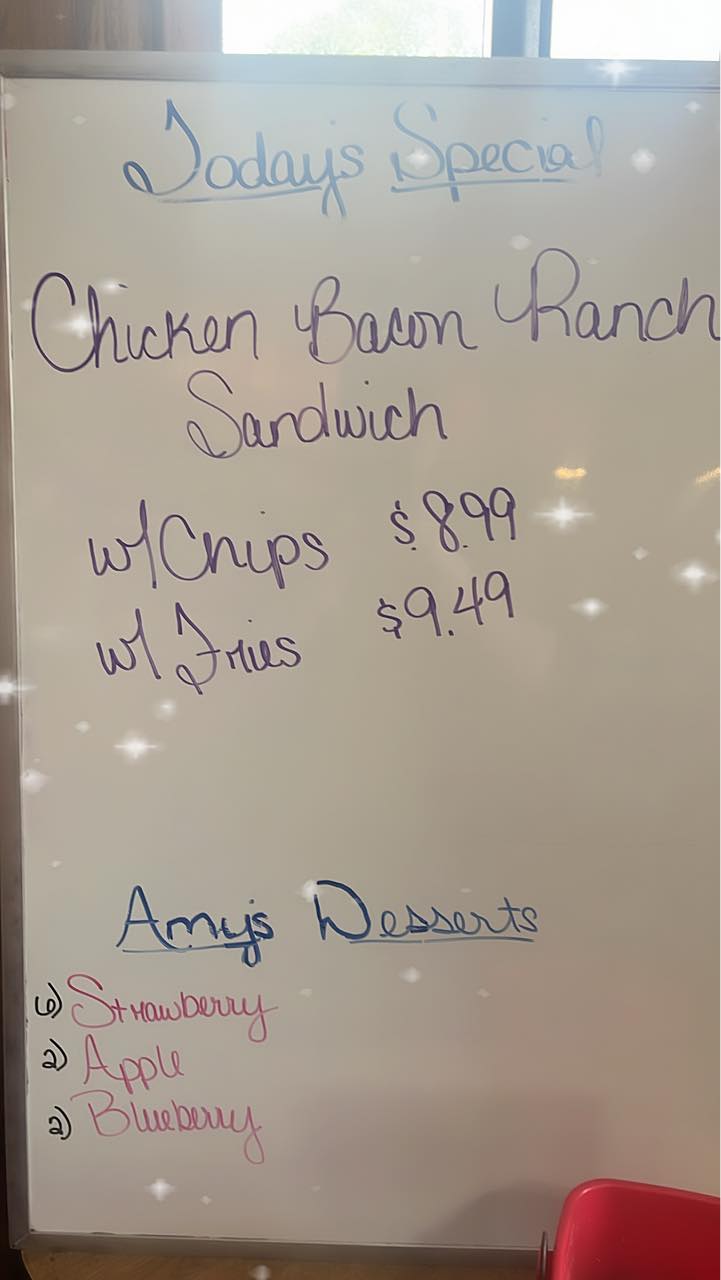 Today's Special
Chicken Bacon Ranch
Sandwich
w/Chips $8.99
w/ Fries $9.49
Amy's Desserts
6) Strawberry
2) Apple
2) Blueberry